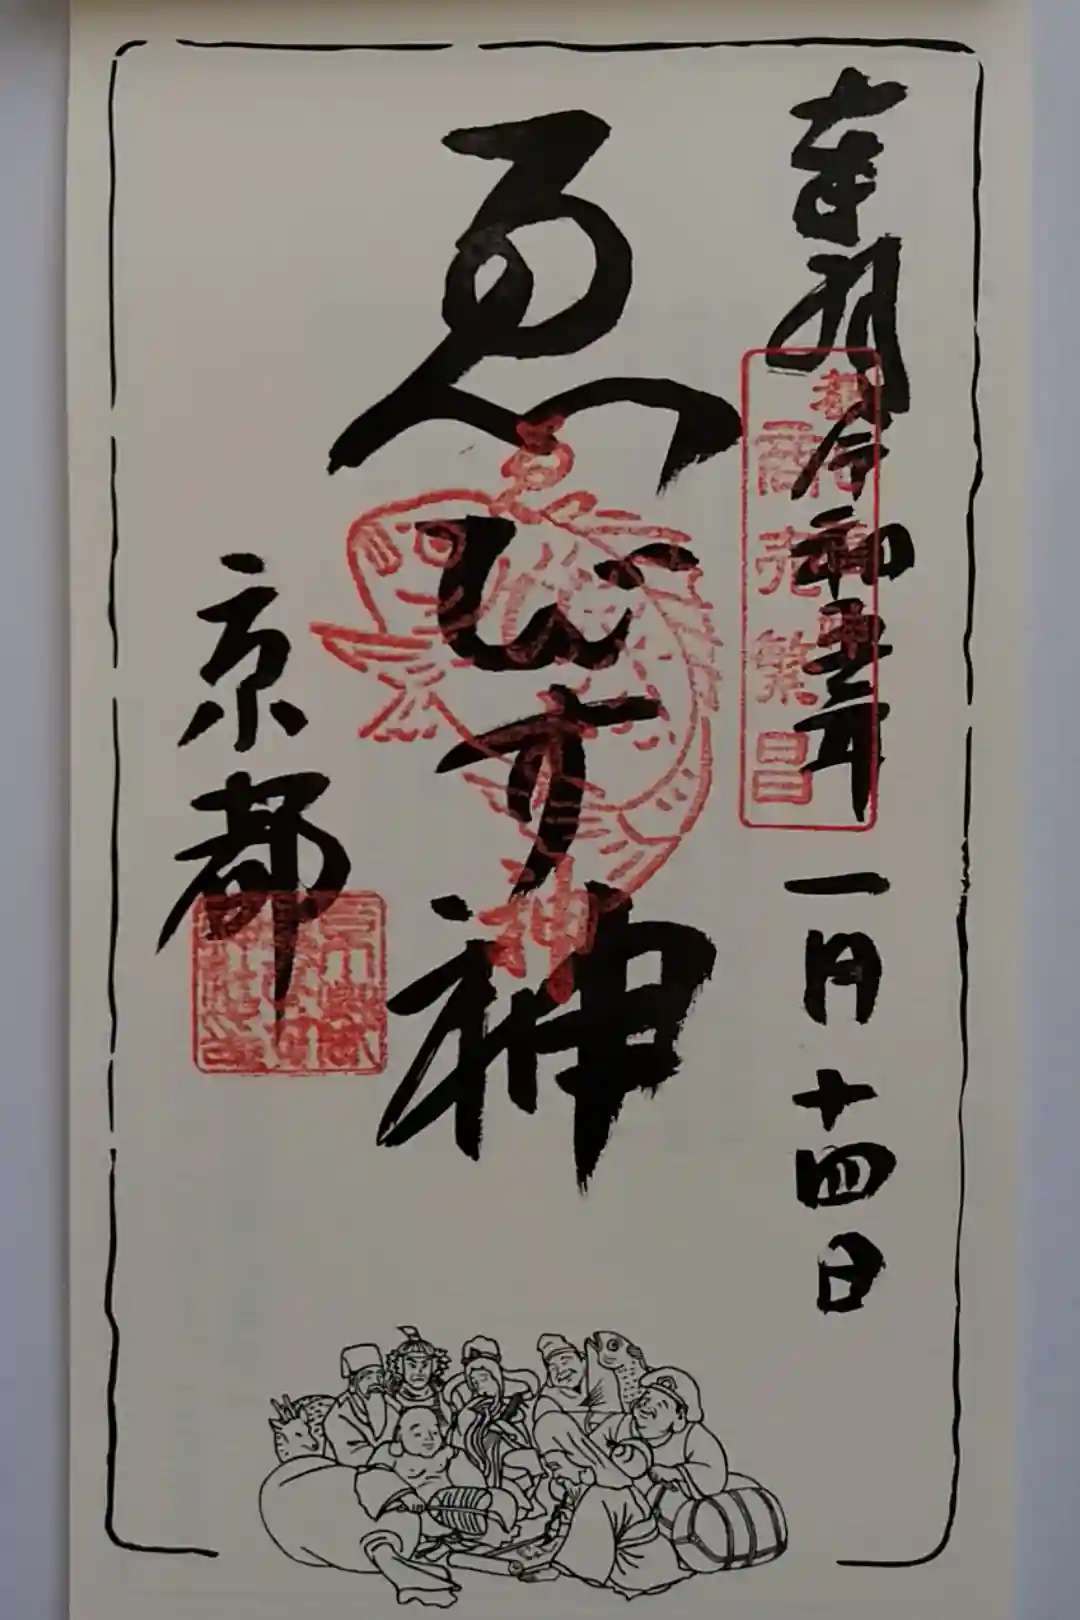 奉拝 令和五年 一月十四日
商売繁昌
ゑびす神
ゑ
神
京都